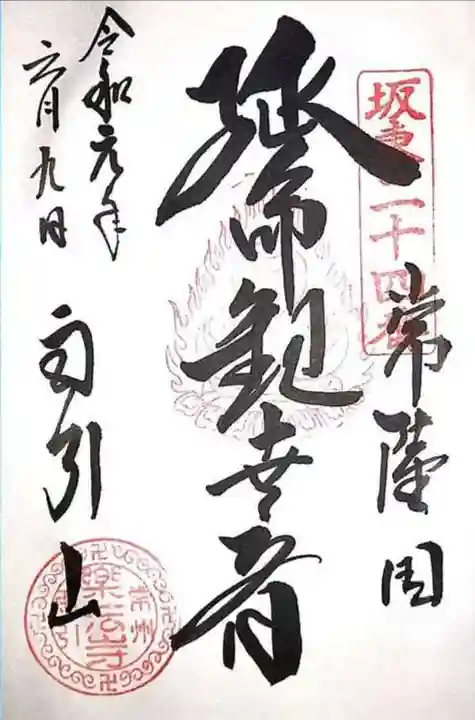 坂東二十四番
常陸国
延命観世音
令和元年
六月九日
雨引山
常州
樂法寺
雨引